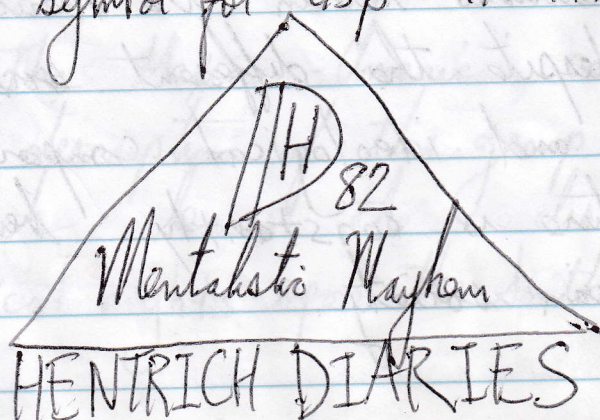 symbol for
DH
82
Mentalistic Mayhem
HENTRICH DIARIES